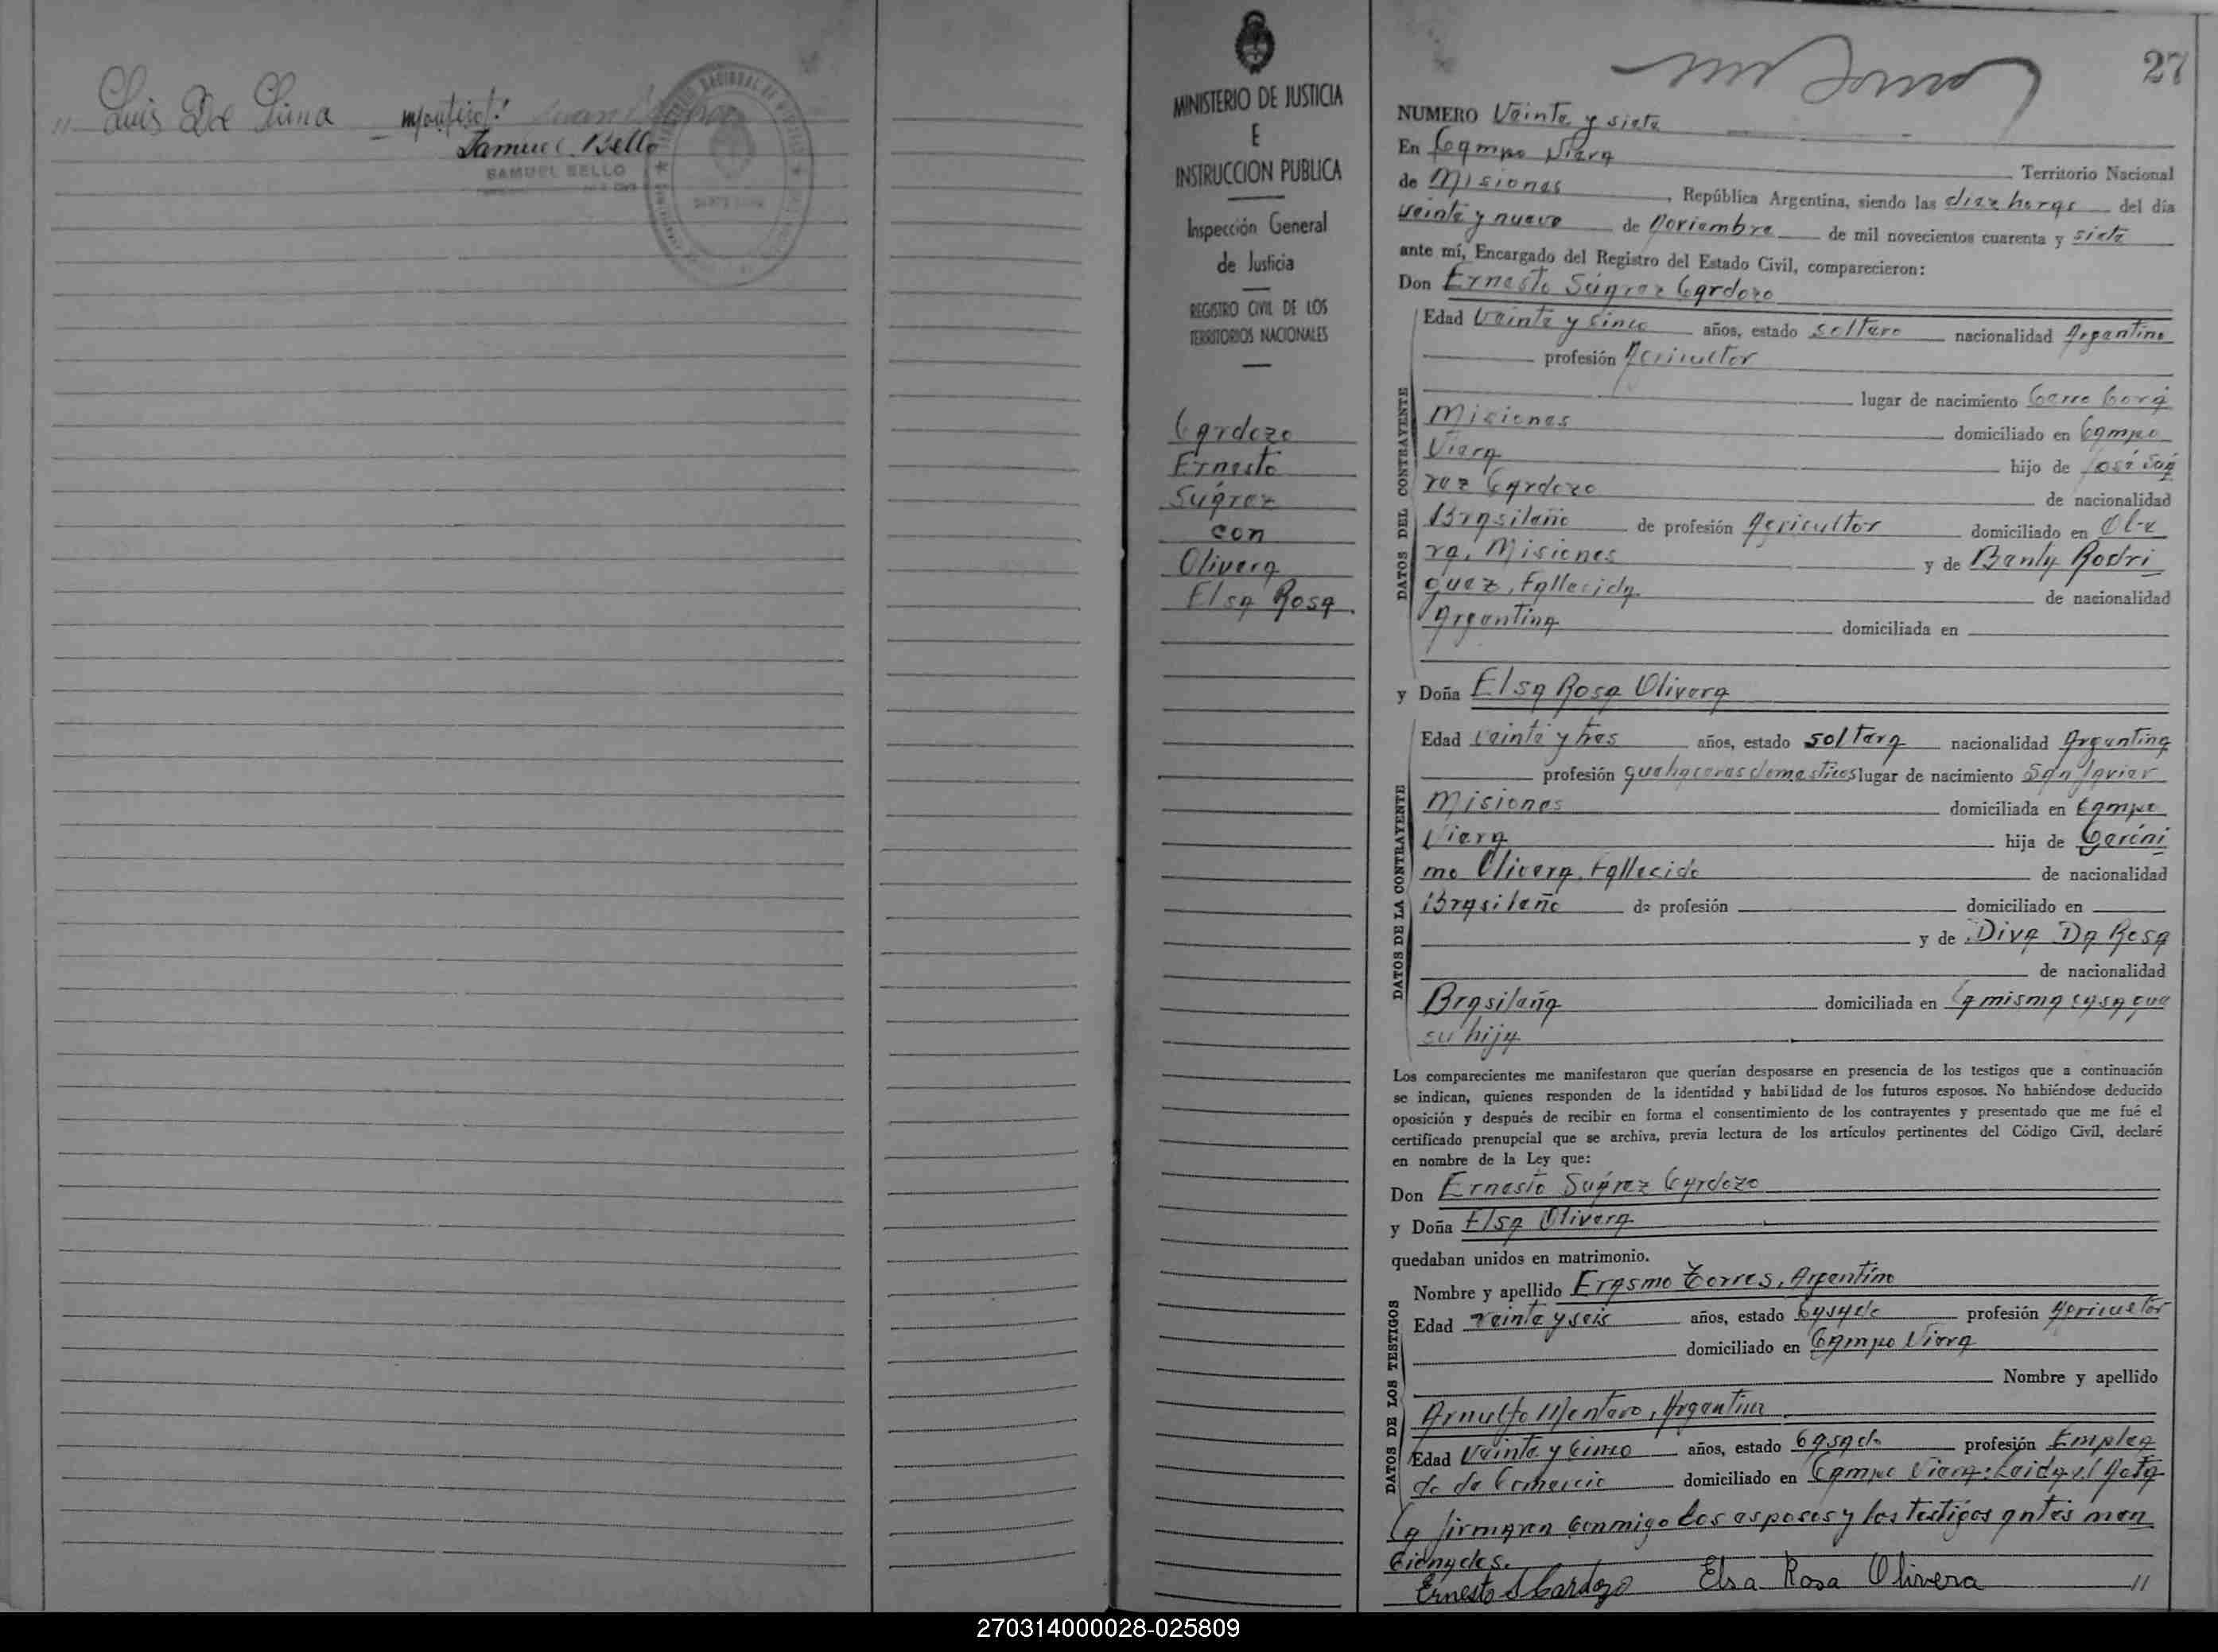 " Luis De Lima
Samuel Bello
SAMUEL BELLO
MINISTERIO DE JUSTICIA
E
INSTRUCCION PUBLICA
Inspección General
de Justicia
REGISTRO CIVIL DE LOS
TERRITORIOS NACIONALES
Cardozo
Ernesto
Suárez
con
Olivera
Elsa Rosa.
27
NUMERO Veinte y siete
En Campo Viera Territorio Nacional
de Misiones, República Argentina, siendo las diez horas del día
veinte y nueve de Noviembre de mil novecientos cuarenta y siete
ante mí, Encargado del Registro del Estado Civil, comparecieron:
Don Ernesto Suárez Cardozo
Edad Veinte y cinco años, estado soltero nacionalidad Argentino
profesión Agricultor
lugar de nacimiento Cerro Corá
Misiones domiciliado en Campo
Viera hijo de José Suá
rez Cardozo de nacionalidad
Brasileño de profesión Agricultor domiciliado en Obe
ra, Misiones y de Banly Rodri
guez, Fallecida. de nacionalidad
Argentina domiciliada en
y Doña Elsa Rosa Olivera
Edad veinte y tres años, estado soltera nacionalidad Argentina
profesión quehaceres domesticos lugar de nacimiento San Javier
Misiones domiciliada en Campo
Viera hija de Geróni
mo Olivera, Fallecido de nacionalidad
Brasileño de profesión domiciliado en
y de Diva Da Rosa
de nacionalidad
Brasileña domiciliada en la misma casa que
su hija
Los comparecientes me manifestaron que querían desposarse en presencia de los testigos que a continuación
se indican, quienes responden de la identidad y habilidad de los futuros esposos. No habiéndose deducido
oposición y después de recibir en forma el consentimiento de los contrayentes y presentado que me fué el
certificado prenupcial que se archiva, previa lectura de los artículos pertinentes del Código Civil, declaré
en nombre de la Ley que:
Don Ernesto Suárez Cardozo
y Doña Elsa Olivera
quedaban unidos en matrimonio.
Nombre y apellido Erasmo Torres, Argentino
Edad veinte y seis años, estado Casado profesión Agricultor
domiciliado en Campo Viera
Nombre y apellido
Arnulfo Montero, Argentino
Edad Veinte y Cinco años, estado Casado profesión Emplea
do de Comercio domiciliado en Campo Viera. Leida el Acta
la firmaron conmigo los esposos y los testigos antes men
cionados.
Ernesto S Cardozo Elsa Rosa Olivera "
DATOS DEL CONTRAYENTE
DATOS DE LA CONTRAYENTE
DATOS DE LOS TESTIGOS
270314000028-025809